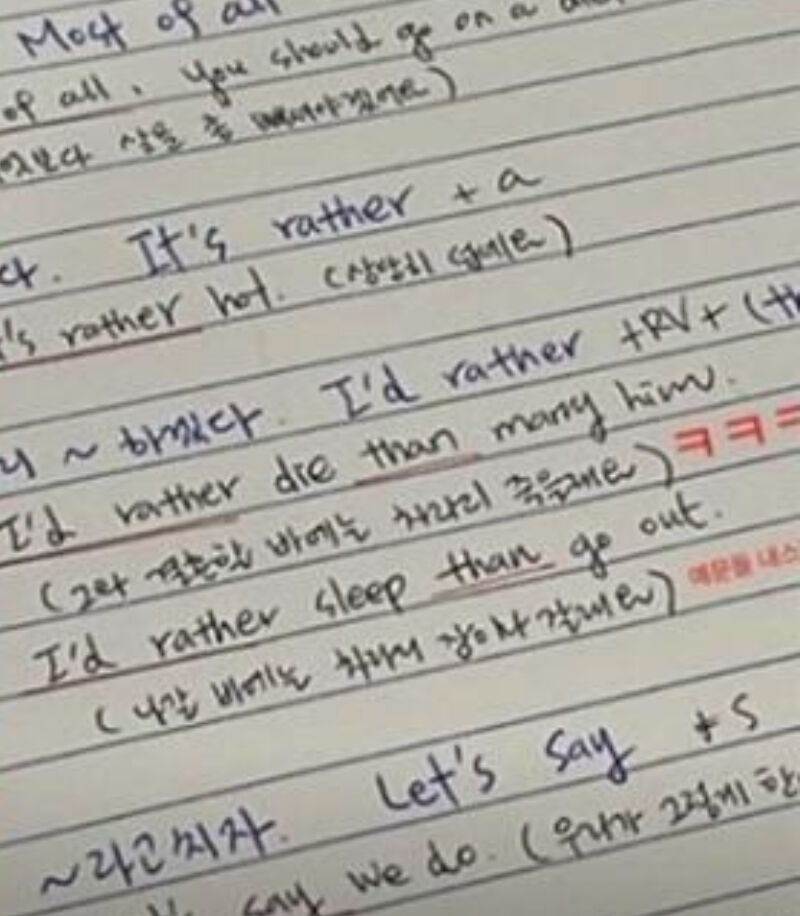 Most of all
of all. You should go on a
보다 살을 좀 빼야겠어요)
다. It's rather + a
's rather hot. (상당히 덥네요)
리 ~ 하겠다. I'd rather +RV+ (th
I'd rather die than marry him.
ㅋㅋㅋ
(그와 결혼할 바에는 차라리 죽을래요)
I'd rather sleep than go out.
예문들 내스
(나갈 바에는 차라리 잠이나 잘래요)
~라고치자. Let's say + S
say we do. (우리가 그렇게 한